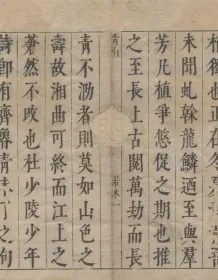 未聞虬榦龍鱗迺與羣
芳凡植爭悠促之期也推
之至長上古閱萬劫而長
青引
若水一
青不凋者則莫如山色之
壽故湘曲可終而江上之
蒼然不改也杜少陵少年
詩卽有齊魯青未了之句